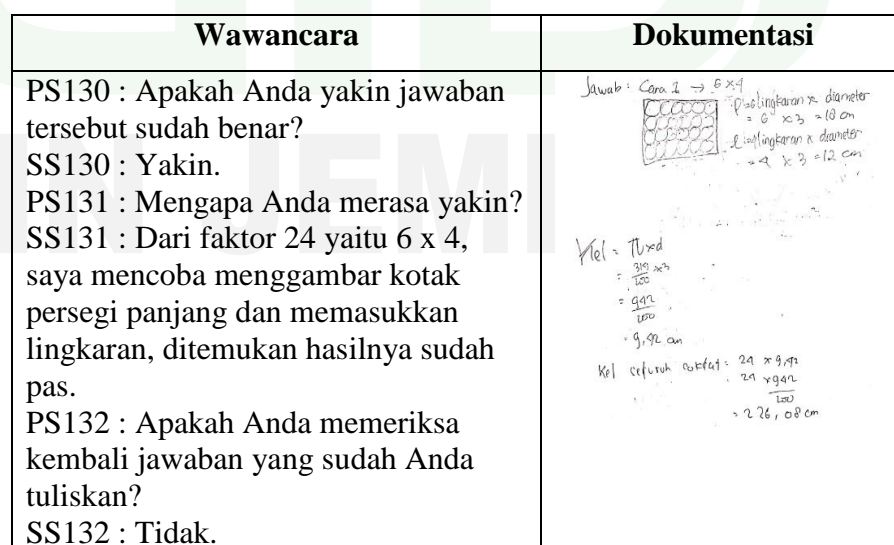 Wawancara
Dokumentasi
PS130 : Apakah Anda yakin jawaban
tersebut sudah benar?
SS130 : Yakin.
PS131 : Mengapa Anda merasa yakin?
SS131 : Dari faktor 24 yaitu 6 x 4,
saya mencoba menggambar kotak
persegi panjang dan memasukkan
lingkaran, ditemukan hasilnya sudah
pas.
PS132 : Apakah Anda memeriksa
kembali jawaban yang sudah Anda
tuliskan?
SS132 : Tidak.
Jawab : Cara 1 → 6 x 4
lingkaran x diameter
= 6 x 3 = 18 cm
lingkaran x diameter
= 4 x 3 = 12 cm
Kel = π x d
= 314 x 3
100
= 942
100
= 9,42 cm
Kel seluruh coklat = 24 x 9,42
= 24 x 942
100
= 226,08 cm